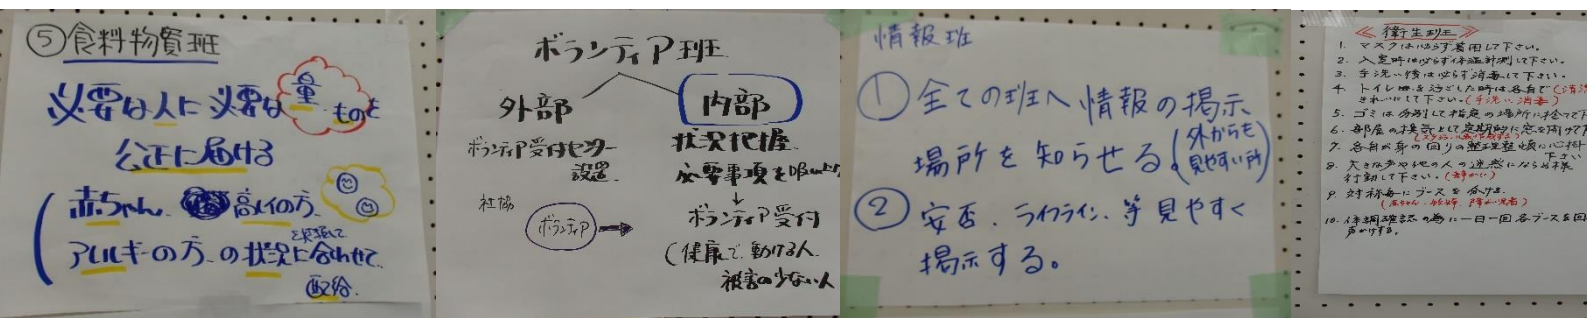 ⑤食料物資班
必要な人に必要な量ものを
公正に届ける
赤ちゃん、高レイの方、
アレルギーの方、の状況に合わせて、
配給
ボランティア班
外部
内部
ボランティア受付センター
設置
社協
ボランティア
状況把握
必要事項を
↓
ボランティア受付
(健康で、動ける人
被害の少ない人
情報班
① 全ての班へ情報の掲示
場所を知らせる。(外からも
見やすい所)
② 安否、ライフライン、等見やすく
掲示する。
≪衛生班≫
1. マスクは必らず着用して下さい。
2. 入室時は必らず体温計測して下さい。
3. 手洗い後は必らず消毒して下さい。
4. トイレ
きれいにして下さい。(手洗い消毒)
5. ゴミは分別して指定の場所に捨てて下
6. 部屋の換気として定期的に窓を開けて下
7. 各自が身の回りの整理整頓に心掛け
下さい
8. 大きな声や他の人の迷惑にならぬ様
行動して下さい。(静かに)
9. 対称毎にブースを分ける。
10. 体調確認の為に一日一回各ブースを回
声かけする。